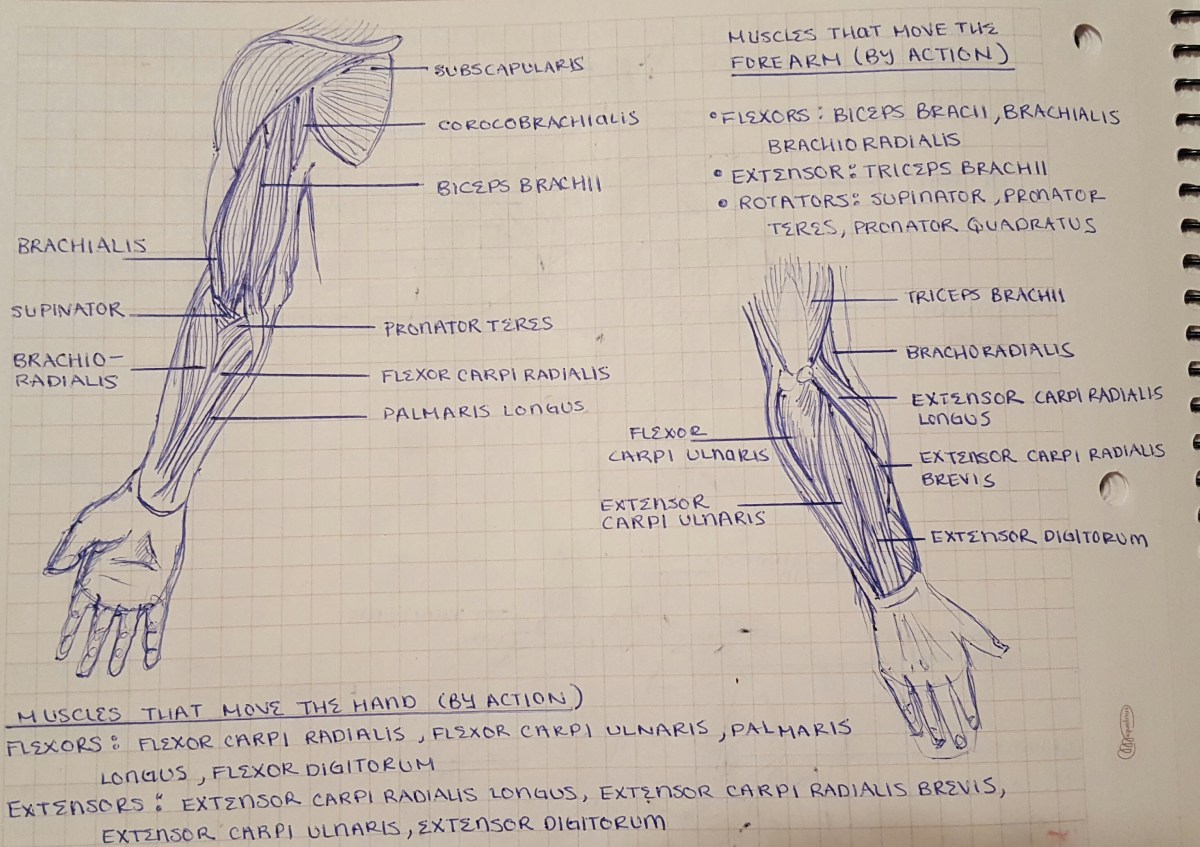 SUBSCAPULARIS
COROCOBRACHIALIS
BICEPS BRACHII
BRACHIALIS
SUPINATOR
BRACHIO-
RADIALIS
PRONATOR TERES
FLEXOR CARPI RADIALIS
PALMARIS LONGUS
MUSCLES THAT MOVE THE
FOREARM (BY ACTION)
• FLEXORS: BICEPS BRACII, BRACHIALIS
BRACHIORADIALIS
• EXTENSOR: TRICEPS BRACHII
• ROTATORS: SUPINATOR, PRONATOR
TERES, PRONATOR QUADRATUS
TRICEPS BRACHII
BRACHORADIALIS
EXTENSOR CARPI RADIALIS
LONGUS
FLEXOR
CARPI ULNARIS
EXTENSOR CARPI RADIALIS
BREVIS
EXTENSOR
CARPI ULNARIS
EXTENSOR DIGITORUM
MUSCLES THAT MOVE THE HAND (BY ACTION)
FLEXORS: FLEXOR CARPI RADIALIS, FLEXOR CARPI ULNARIS, PALMARIS
LONGUS, FLEXOR DIGITORUM
EXTENSORS: EXTENSOR CARPI RADIALIS LONGUS, EXTENSOR CARPI RADIALIS BREVIS,
EXTENSOR CARPI ULNARIS, EXTENSOR DIGITORUM